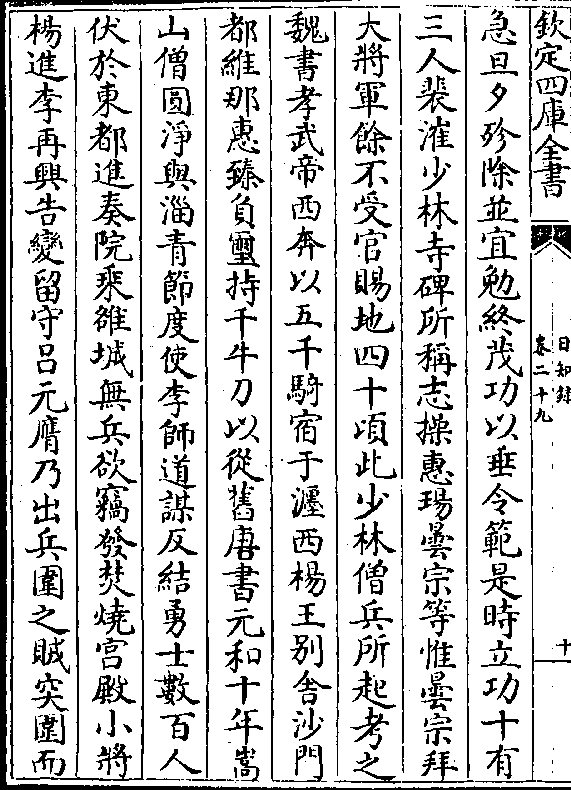 欽定四庫全書
日知錄
卷二十九
十
急旦夕殄除並宜勉終茂功以垂令範是時立功十有
三人裴漼少林寺碑所稱志操惠瑒曇宗等惟曇宗拜
大將軍餘不受官賜地四十頃此少林僧兵所起考之
魏書孝武帝西奔以五千騎宿于瀍西楊王别舍沙門
都維那惠臻負璽持千牛刀以從舊唐書元和十年嵩
山僧圓淨與淄青節度使李師道謀反結勇士數百人
伏於東都進奏院乘雒城無兵欲竊發焚燒宫殿小將
楊進李再興告變留守呂元膺乃出兵圍之賊突圍而